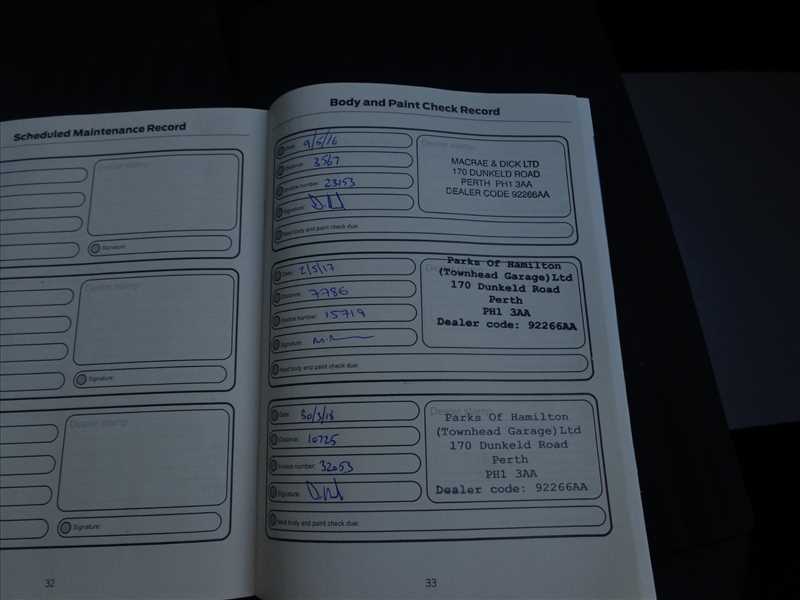 Scheduled Maintenance Record
Dealer stamp
Signature:
Dealer stamp
Signature:
Dealer stamp
Signature:
32
Body and Paint Check Record
Date: 9/5/16
Distance: 3567
Invoice number: 23153
Signature:
Next body and paint check due:
Dealer stamp
MACRAE & DICK LTD
170 DUNKELD ROAD
PERTH PH1 3AA
DEALER CODE 92266AA
Date: 2/5/17
Distance: 7786
Invoice number: 15719
Signature:
Next body and paint check due:
Parks Of Hamilton
(Townhead Garage)Ltd
170 Dunkeld Road
Perth
PH1 3AA
Dealer code: 92266AA
Date: 30/3/18
Distance: 10725
Invoice number: 32053
Signature:
Next body and paint check due:
Dealer stamp
Parks Of Hamilton
(Townhead Garage)Ltd
170 Dunkeld Road
Perth
PH1 3AA
Dealer code: 92266AA
33